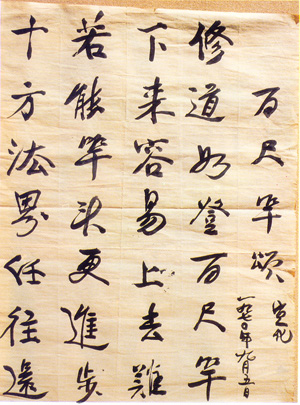 百尺竿頌
宣化
一九七〇年九月五日
修道如登百尺竿
下来容易上去難
若能竿头更進步
十方法界任往還